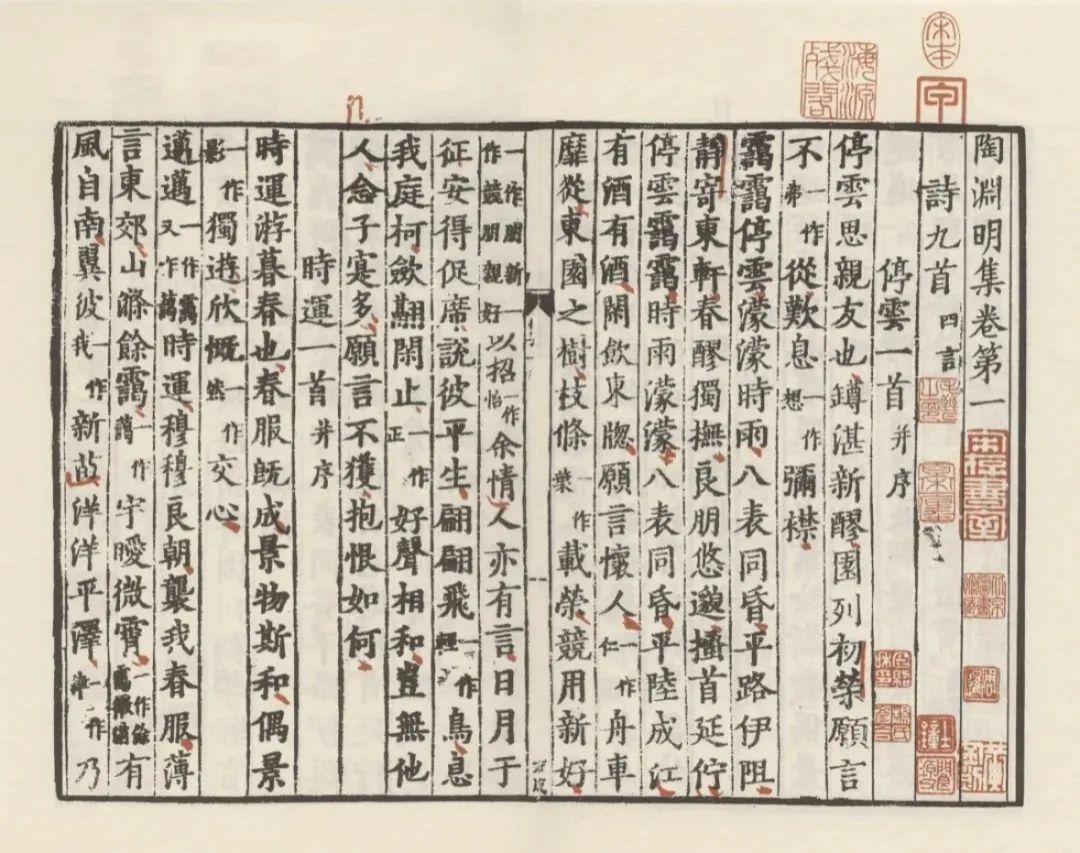 宋本
海源殘閣
宋存書室
陶淵明集卷第一
詩九首 四言
停雲一首 并序
停雲思親友也罇湛新醪園列初榮願言
不一作弗從歎息一作想彌襟
靄靄停雲濛濛時雨八表同昏平路伊阻
靜寄東軒春醪獨撫良朋悠邈搔首延佇
停雲靄靄時雨濛濛八表同昏平陸成江
有酒有酒閑飲東牕願言懷人一作仁舟車
靡從東園之樹枝條一作葉載榮競用新好
一作朋新一作競朋親好以招一作怡余情人亦有言日月于
征安得促席說彼平生翩翩飛一作輕鳥息
我庭柯斂翮閑止一作正好聲相和豈無他
人念子寔多願言不獲抱恨如何
時運一首 并序
時運游暮春也春服既成景物斯和偶景
一作影獨遊欣慨一作然交心
邁邁一作靄又作藹時運穆穆良朝襲我春服薄
言東郊山滌餘靄一作藹宇曖微霄一作餘靄微消有
風自南翼彼一作我新苗洋洋平澤一作津乃